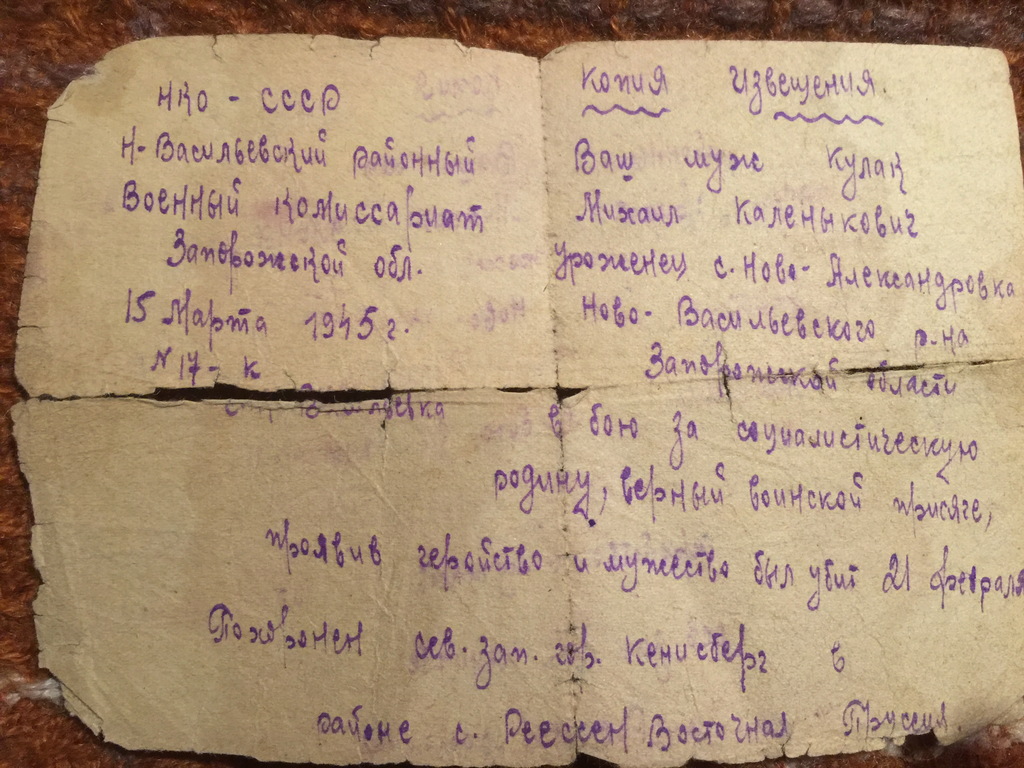 НКО - СССР
Н-Васильевский районный
Военный комиссариат
Запорожской обл.
15 Марта 1945 г.
N 17 - к
Копия Извещения.
Ваш муж Кулак
Михаил Каленыкович
уроженец с. Ново-Александровка
Ново-Васильевского р-на
Запорожской области
в бою за социалистическую
родину, верный воинской присяге,
проявив геройство и мужество был убит 21 февраля
Похоронен сев. зап. гор. Кенисберг в
районе с. Реессен Восточная Пруссия.